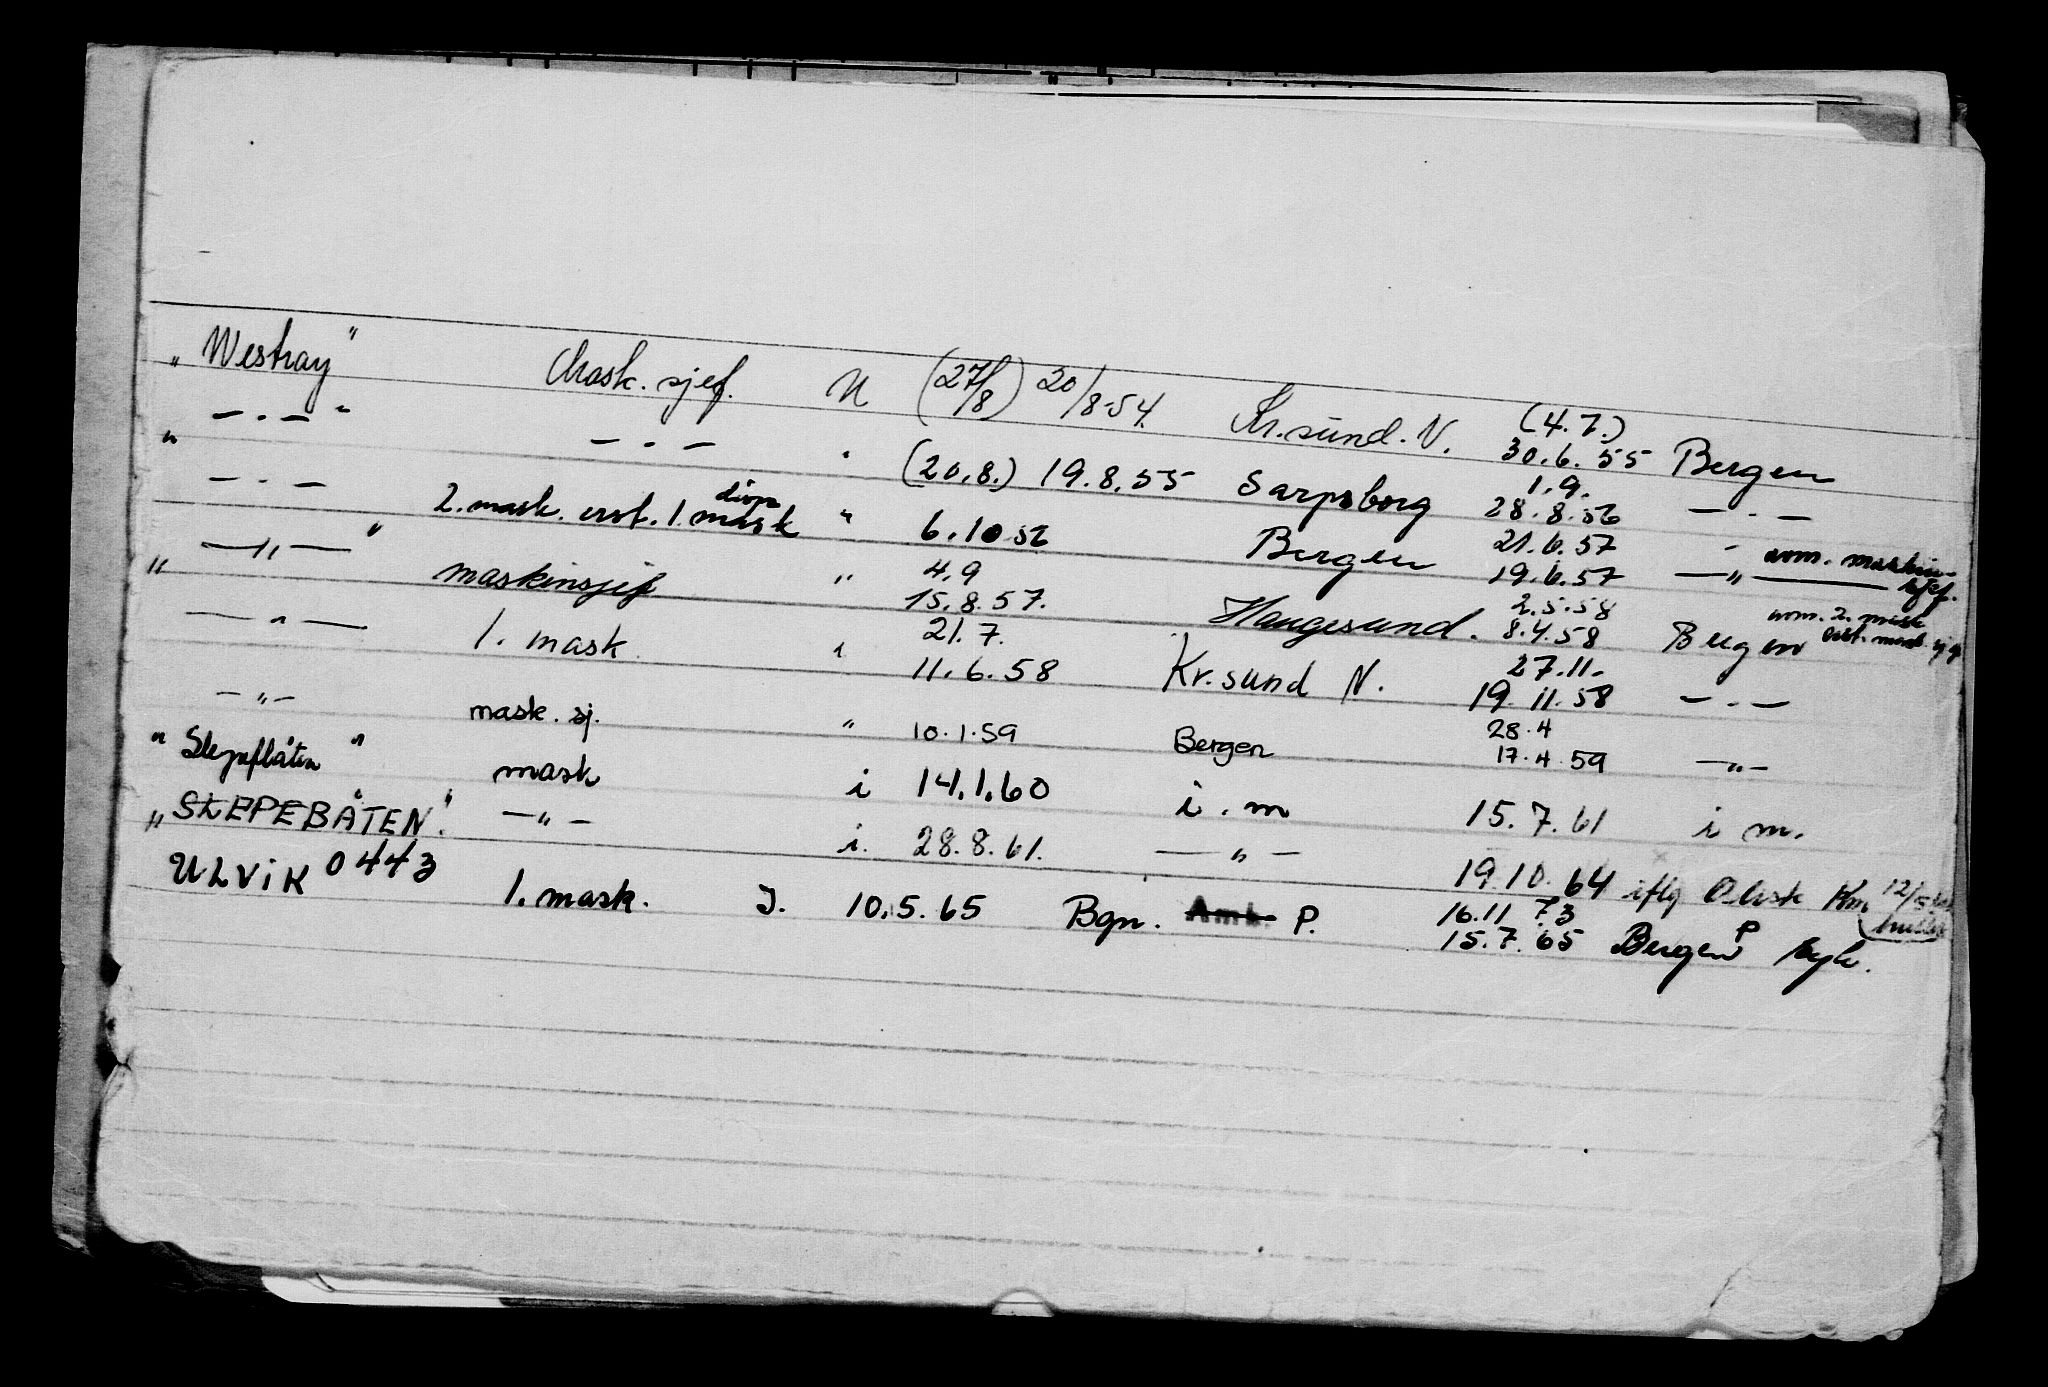 „ Westray" Mask. sjef. N (27/8) 20/8-54. Kr.sund. N. (4.7.) 30.6.55 Bergen
" — · — " — · — " (20.8.) 19.8.55 Sarpsborg 1.9. 28.8.56 — · —
— · — 2. mask. erst. 1. mask " 6.10 56 Bergen 21.6.57 19.6.57 — „ — avm. maskinsjef.
" — „ — " maskinsjef „ 4.9 15.8.57. Haugesund. 2.5.58 8.4.58 Bergen avm. 2. mask
— „ — 1. mask. " 21.7. 11.6.58 Kr.sund N. 27.11. 19.11.58 — · —
— „ — mask. sj. " 10.1.59 Bergen 28.4 17.4.59 — „ —
" Slepeflåten " mask i 14.1.60 i.m 15.7.61 i m.
„ SLEPEBÅTEN". — „ — i. 28.8.61. — „ — 19.10.64 iflg
ULVIK 0443 1. mask. I. 10.5.65 Bgn. Amk. P. 16.11 73 15.7.65 Bergen P syk.